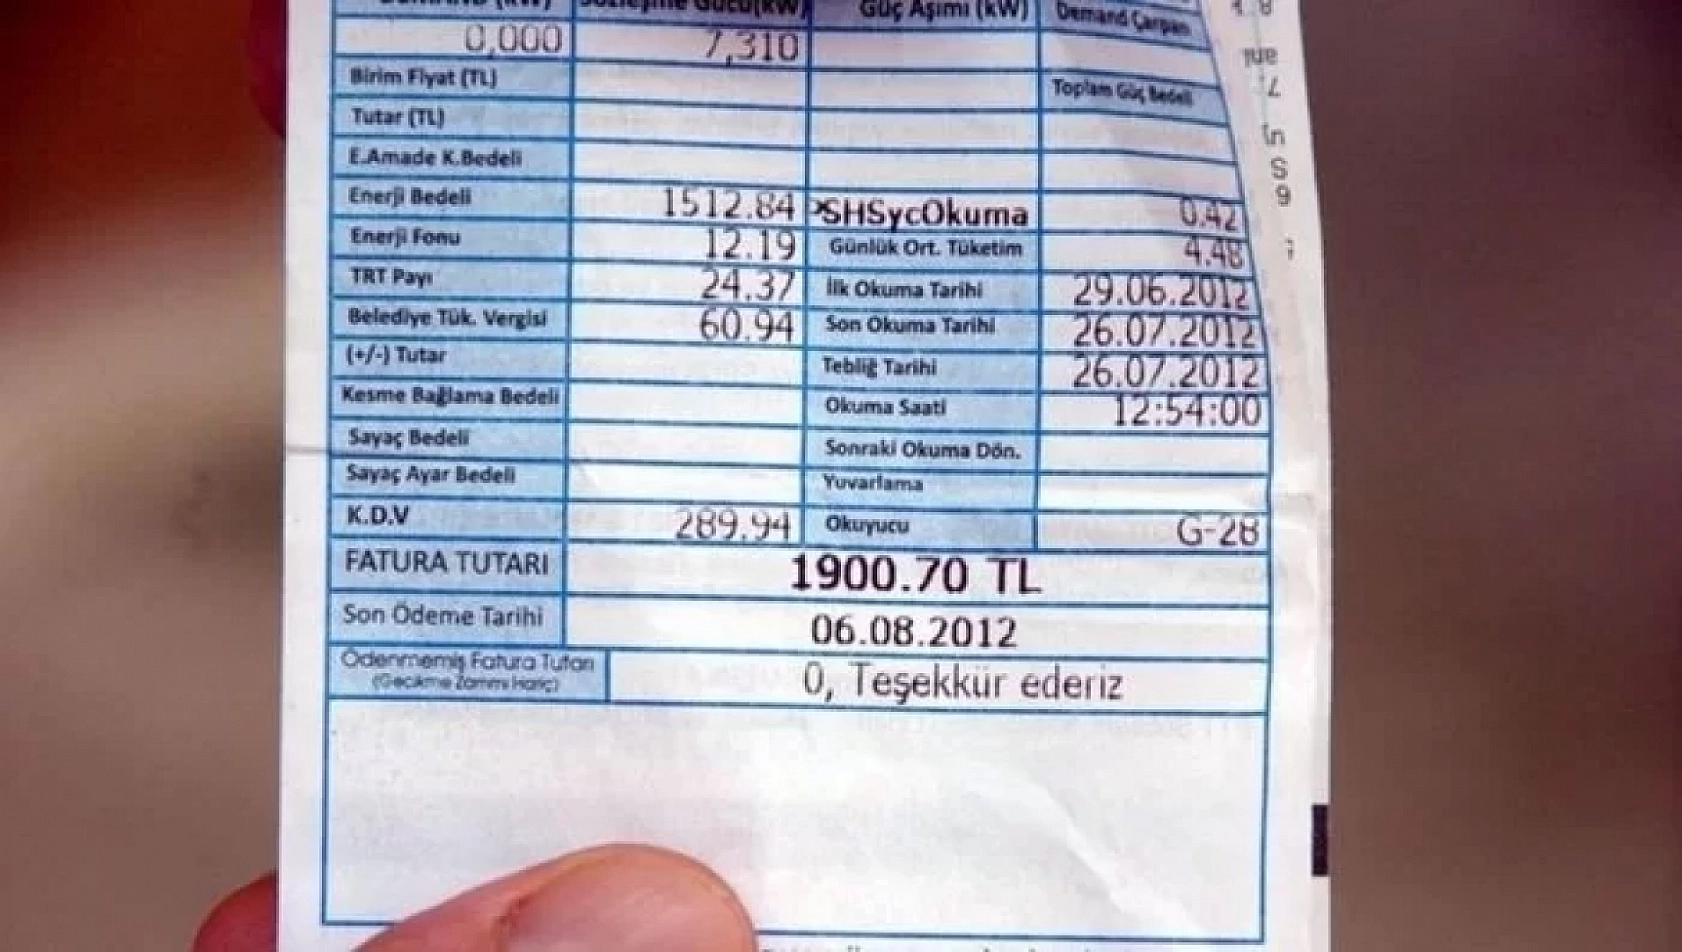 DEMAND (kW) Sözleşme Gücü(kW) Güç Aşımı (kW) Demand Çarpan
0,000 7,310
Birim Fiyat (TL) Toplam Güç Bedeli
Tutar (TL)
E.Amade K.Bedeli
Enerji Bedeli 1512.84 *SHSycOkuma 0.42
Enerji Fonu 12.19 Günlük Ort. Tüketim 4.48
TRT Payı 24.37 İlk Okuma Tarihi 29.06.2012
Belediye Tük. Vergisi 60.94 Son Okuma Tarihi 26.07.2012
(+/-) Tutar Tebliğ Tarihi 26.07.2012
Kesme Bağlama Bedeli Okuma Saati 12:54:00
Sayaç Bedeli Sonraki Okuma Dön.
Sayaç Ayar Bedeli Yuvarlama
K.D.V 289.94 Okuyucu G-28
FATURA TUTARI 1900.70 TL
Son Ödeme Tarihi 06.08.2012
Ödenmemiş Fatura Tutarı 0, Teşekkür ederiz
(Gecikme Zammı Hariç)